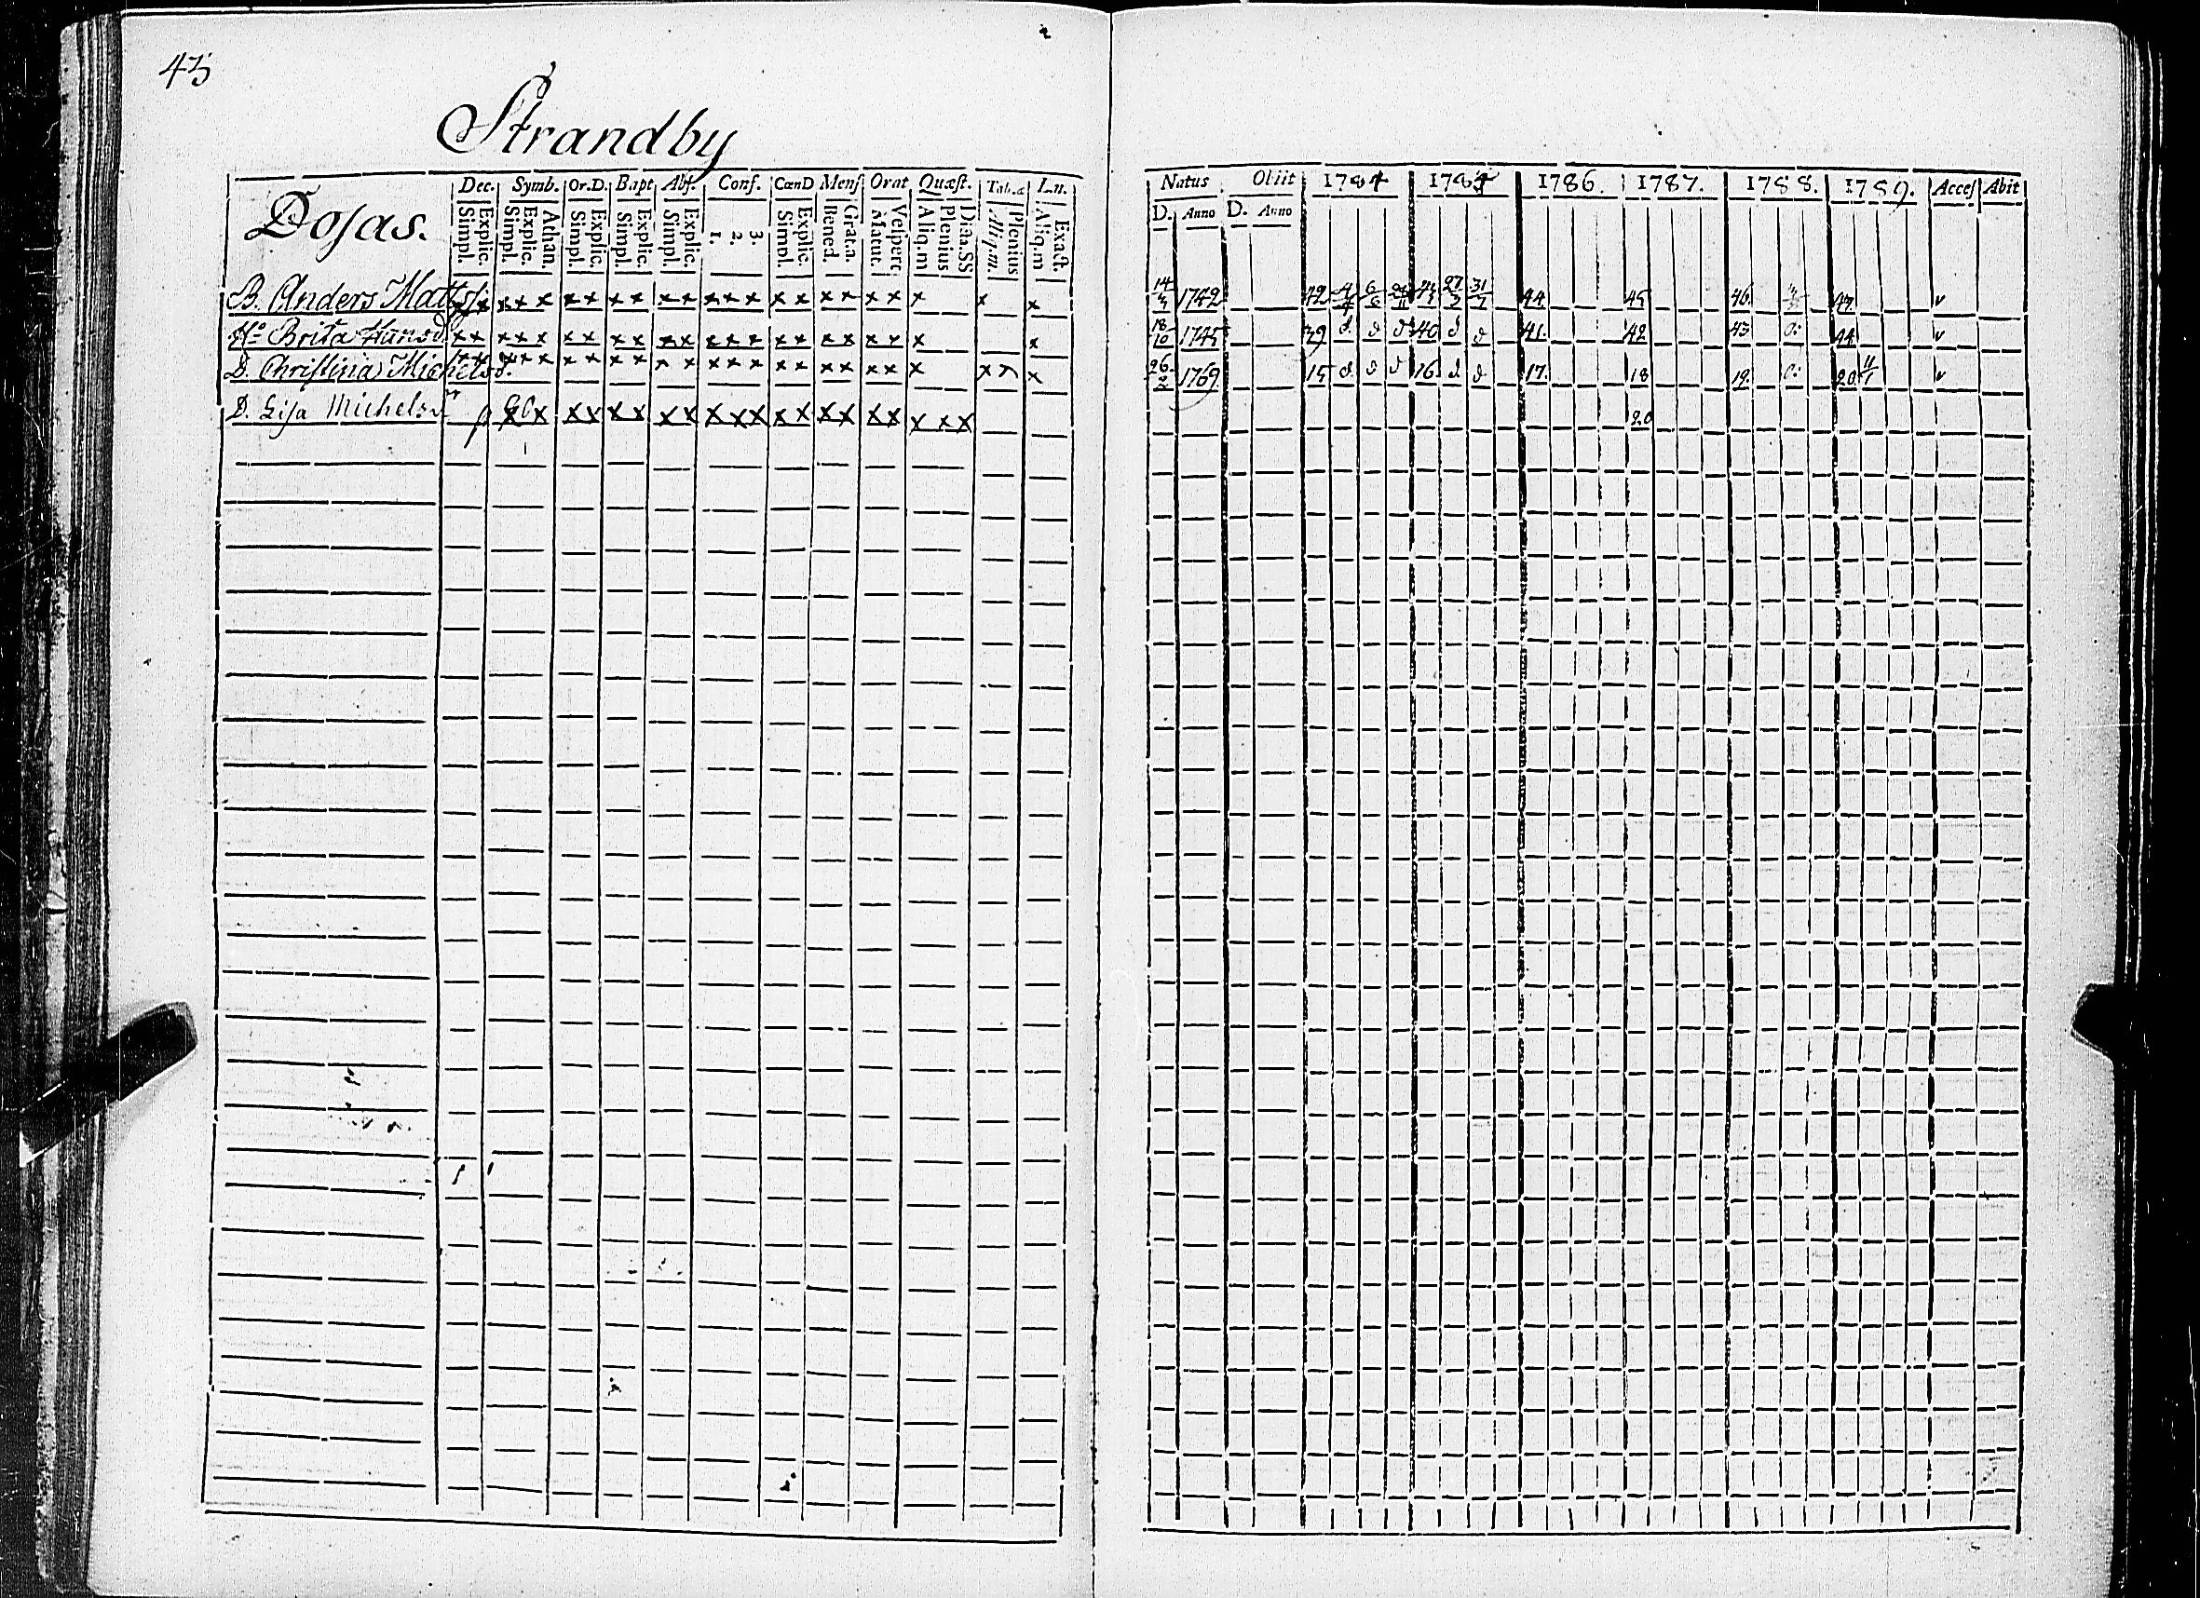 45
Strandby
Dojas.
Dec. Symb. Or.D. Bapt Abs. Conf. CœnD Mens Orat Quæst. Tab.œ L.n.
Simpl. Explic. Simpl. Explic. Athan. Simpl. Explic. Simpl. Explic. Simpl. Explic. 1. 2. 3. Simpl. Explic. Bened. Grat.a. Matut. Vespert. Aliq.m Plenius Dua.SS Aliq.m. Plenius Aliq.m Exact.
B. Anders Matts x x x x x x x x x x x x x x x x x x x x x x
H:o Brita Hansd x x x x x x x x x x x x x x x x x x x x x
D. Christina Michelsd. x x x x x x x x x x x x x x x x x x x x x
D. Lisa Michelsd x x x x x x x x x x x x x x x x x x x x x
Natus Obiit 1784 1785 1786. 1787. 1788. 1789. Acces Abit
D. Anno D. Anno
14 1742 42 4 6 27 31 44 45 46 47
18/10 1745 39 40 41. 42 43 44
26/2 1769 15 16 17. 18 19. 20 11/1
20